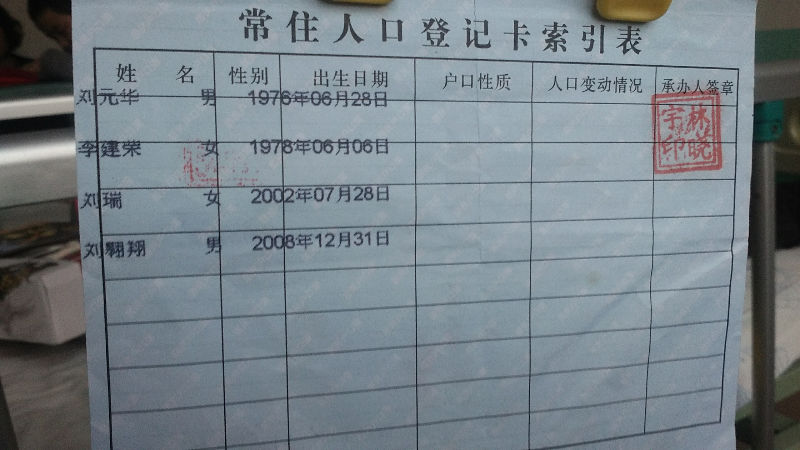 常住人口登记卡索引表
姓名 性别 出生日期 户口性质 人口变动情况 承办人签章
刘元华 男 1976年06月28日
李建荣 女 1978年06月06日
刘瑞 女 2002年07月28日
刘翱翔 男 2008年12月31日
林晓宇印